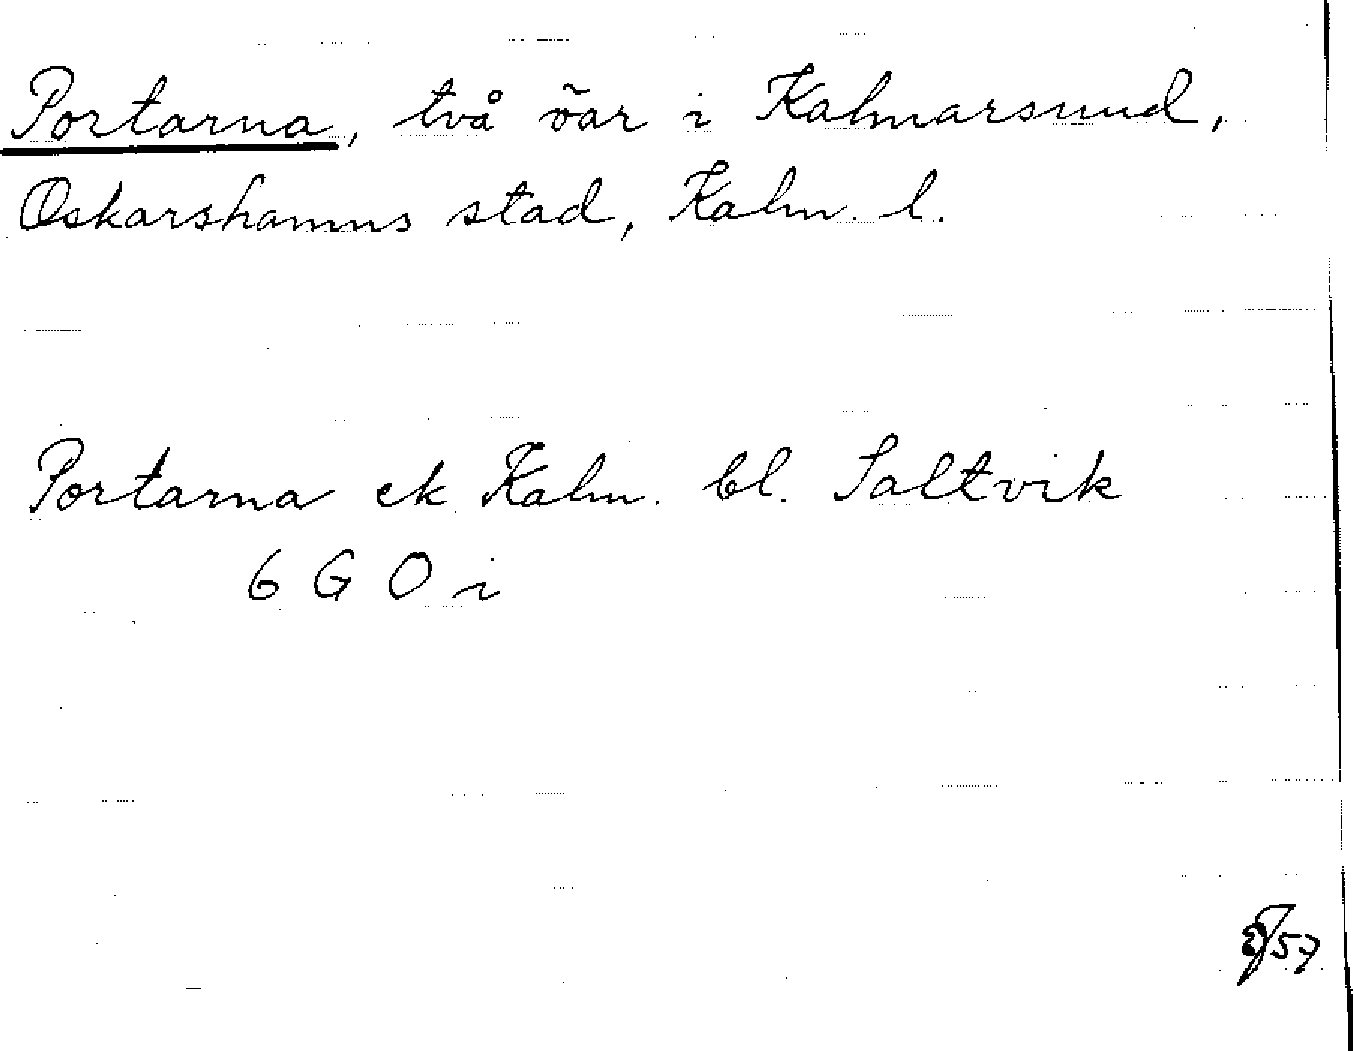 Portarna, två öar i Kalmarsund,
Oskarshamns stad, Kalm. l.
Portarna ek Kalm. bl. Saltvik
6 G O i
/57